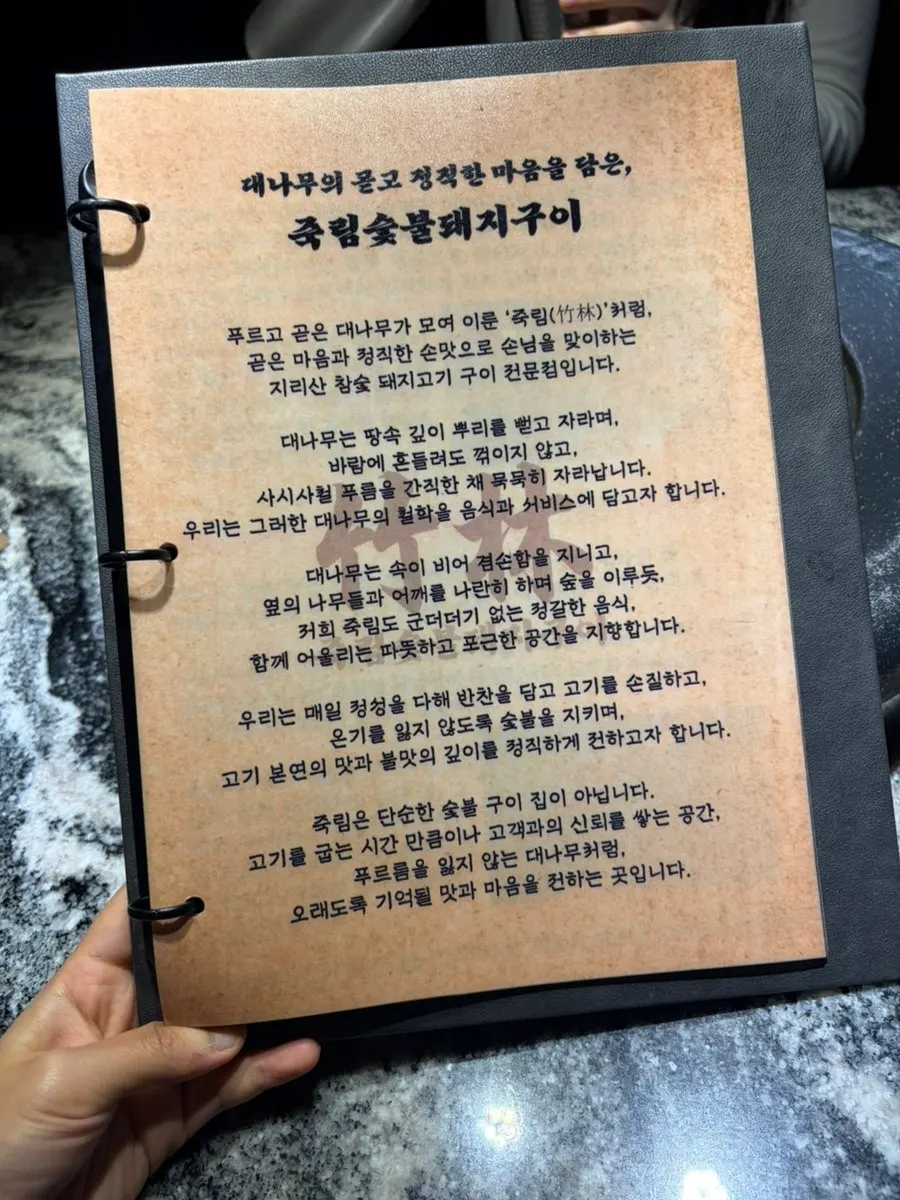 대나무의 곧고 정직한 마음을 담은,
죽림숯불돼지구이
푸르고 곧은 대나무가 모여 이룬 ‘죽림(竹林)’처럼,
곧은 마음과 정직한 손맛으로 손님을 맞이하는
지리산 참숯 돼지고기 구이 전문점입니다.
대나무는 땅속 깊이 뿌리를 뻗고 자라며,
바람에 흔들려도 꺾이지 않고,
사시사철 푸름을 간직한 채 묵묵히 자라납니다.
우리는 그러한 대나무의 철학을 음식과 서비스에 담고자 합니다.
竹林
대나무는 속이 비어 겸손함을 지니고,
옆의 나무들과 어깨를 나란히 하며 숲을 이루듯,
저희 죽림도 군더더기 없는 정갈한 음식,
함께 어울리는 따뜻하고 포근한 공간을 지향합니다.
우리는 매일 정성을 다해 반찬을 담고 고기를 손질하고,
온기를 잃지 않도록 숯불을 지키며,
고기 본연의 맛과 불맛의 깊이를 정직하게 전하고자 합니다.
죽림은 단순한 숯불 구이 집이 아닙니다.
고기를 굽는 시간 만큼이나 고객과의 신뢰를 쌓는 공간,
푸르름을 잃지 않는 대나무처럼,
오래도록 기억될 맛과 마음을 전하는 곳입니다.